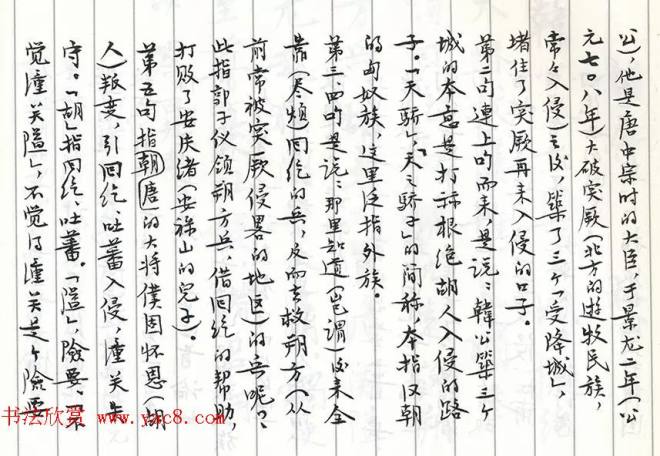 公)，他是唐中宗时的大臣，于景龙二年(公
元七〇八年)大破突厥(北方的游牧民族，
常々入侵)之后，築了三个「受降城」，
堵住了突厥再来入侵的口子。
第二句連上句而来是说：韓公築三个
城的本意是打祘根绝胡人入侵的路
子。「天骄」，「天之骄子」的间称，本指汉朝
的匈奴族，这里泛指外族。
第三、四句是说：那里知道(岂谓)后来全
靠(尽烦)回纥的兵，反而去救朔方(从
前常被突厥侵畧的地区)的兵呢？
此指郭子仪领朔方兵，借回纥的帮助，
打败了安庆绪(安祿山的兒子)。
第五句指朝唐的大将僕固怀恩(胡
人)叛变，引回纥、吐蕃入侵，潼关失
守。「胡」指回纥、吐蕃。「隘」，險要。不
觉潼关隘」，不觉得潼关是个險要
书法欣赏 www.yac8.com